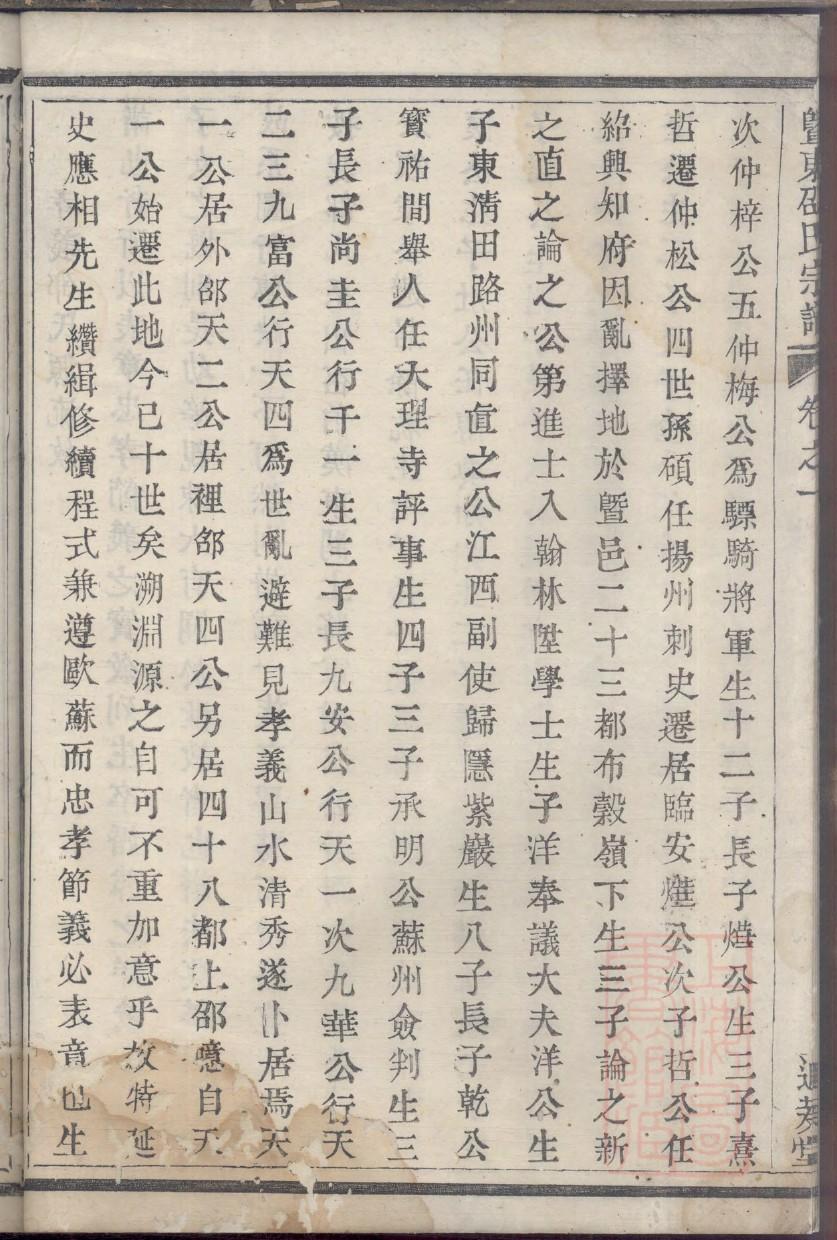 暨東邵氏宗譜 卷之一
次仲梓公五仲梅公爲驃騎將軍生十二子長子燁公生三子熹
哲遷仲松公四世孫碩任揚州刺史遷居臨安燁公次子哲公任
紹興知府因亂擇地於暨邑二十三都布穀嶺下生三子論之新
之直之論之公第進士入翰林陞學士生子洋奉議大夫洋公生
子東淸田路州同直之公江西副使歸隱紫巖生八子長子乾公
寳祐間舉人任大理寺評事生四子三子承明公蘇州僉判生三
子長子尚圭公行千一生三子長九安公行天一次九華公行天
二三九富公行天四爲世亂避難見孝義山水清秀遂卜居焉天
一公居外邰天二公居裡邰天四公另居四十八都上邵噫自天
一公始遷此地今已十世矣溯淵源之自可不重加意乎故特延
史應相先生纘緝修續程式兼遵歐蘇而忠孝節義必表章也生